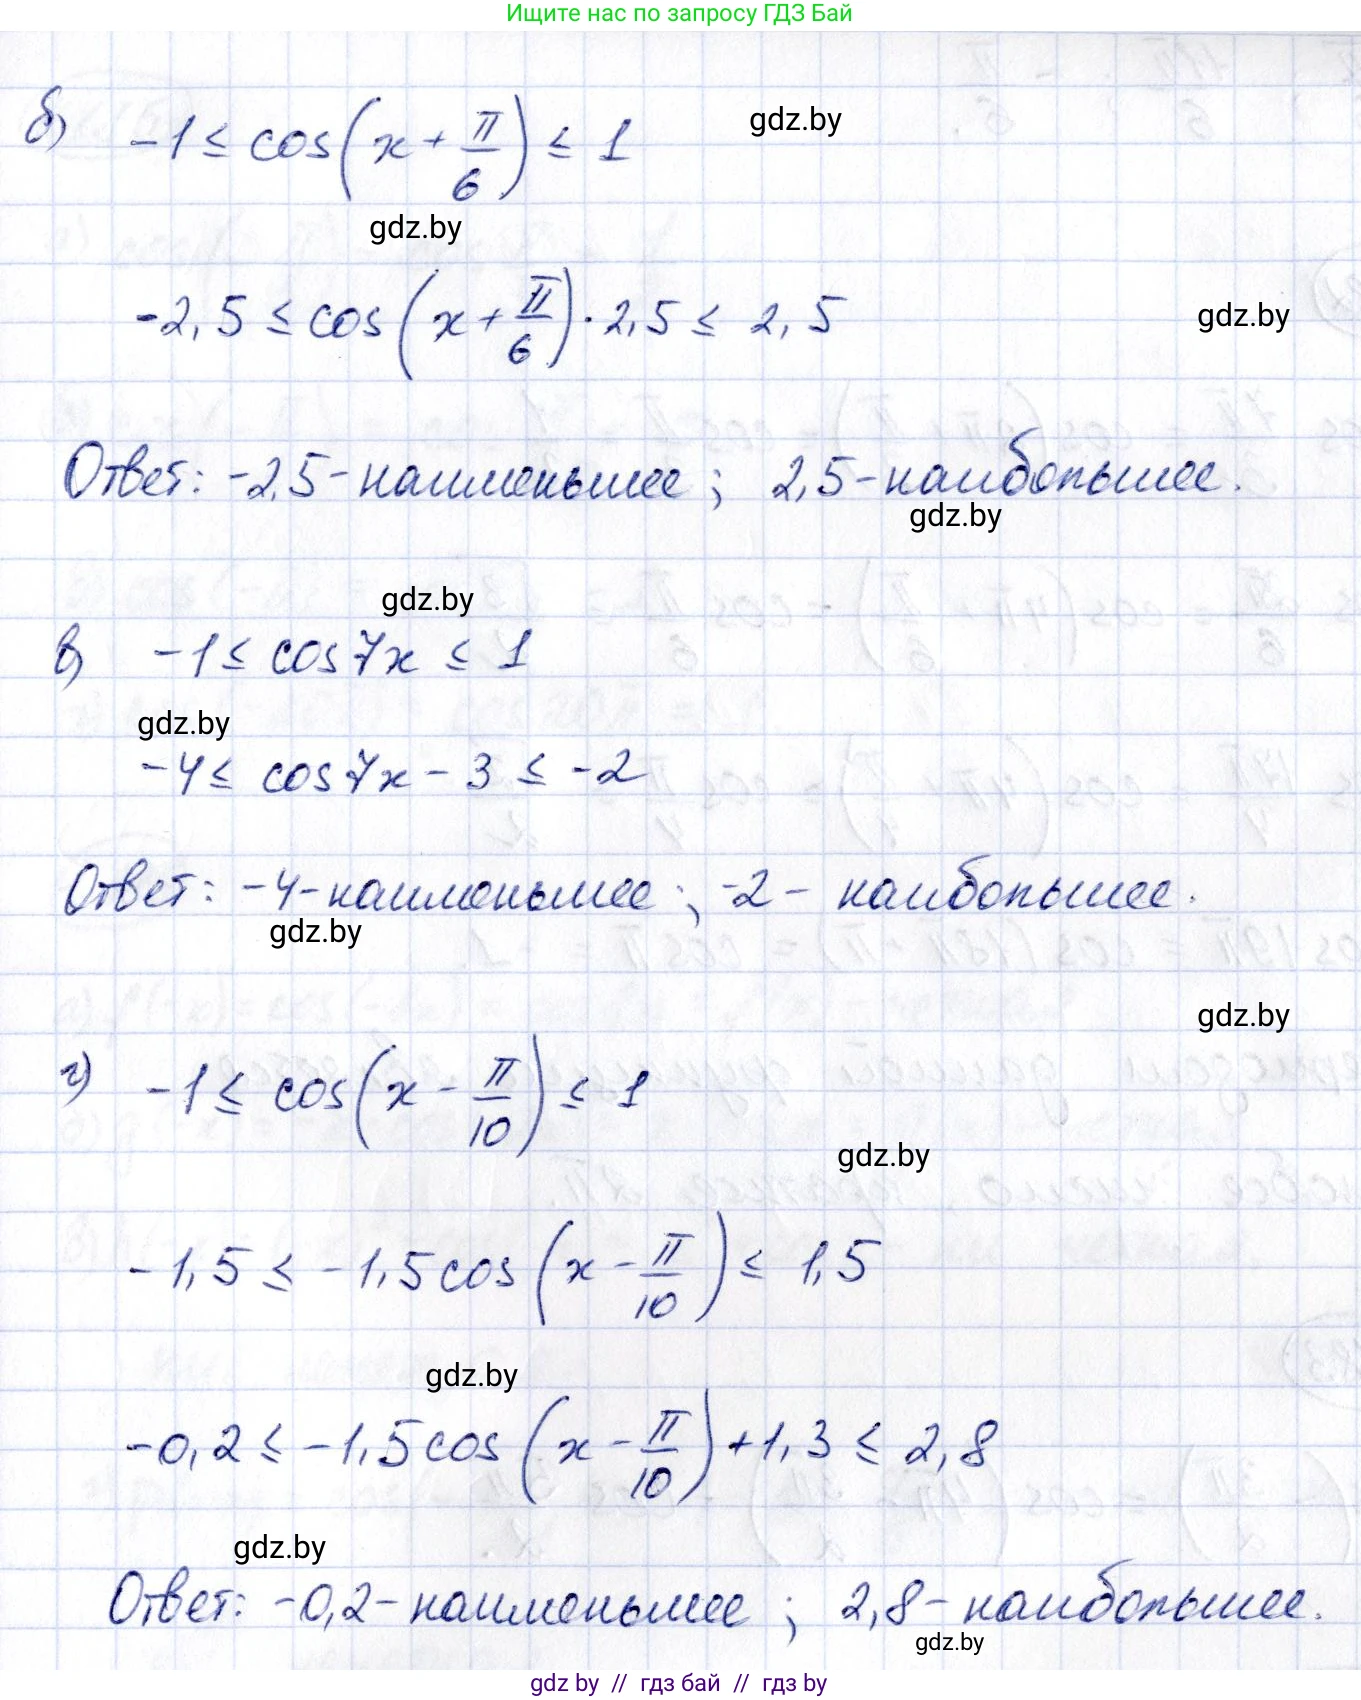 Ищите нас по запросу ГДЗ Бай
б) -1 ≤ cos(x + π/6) ≤ 1
gdz.by
gdz.by
-2,5 ≤ cos(x + π/6) · 2,5 ≤ 2,5
gdz.by
Ответ: -2,5 - наименьшее ; 2,5 - наибольшее.
gdz.by
gdz.by
в) -1 ≤ cos 7x ≤ 1
gdz.by
-4 ≤ cos 7x - 3 ≤ -2
Ответ: -4 - наименьшее ; -2 - наибольшее.
gdz.by
gdz.by
г) -1 ≤ cos(x - π/10) ≤ 1
gdz.by
-1,5 ≤ -1,5 cos(x - π/10) ≤ 1,5
gdz.by
-0,2 ≤ -1,5 cos(x - π/10) + 1,3 ≤ 2,8
gdz.by
Ответ: -0,2 - наименьшее ; 2,8 - наибольшее.
gdz.by
gdz by // гдз бай // gdz by